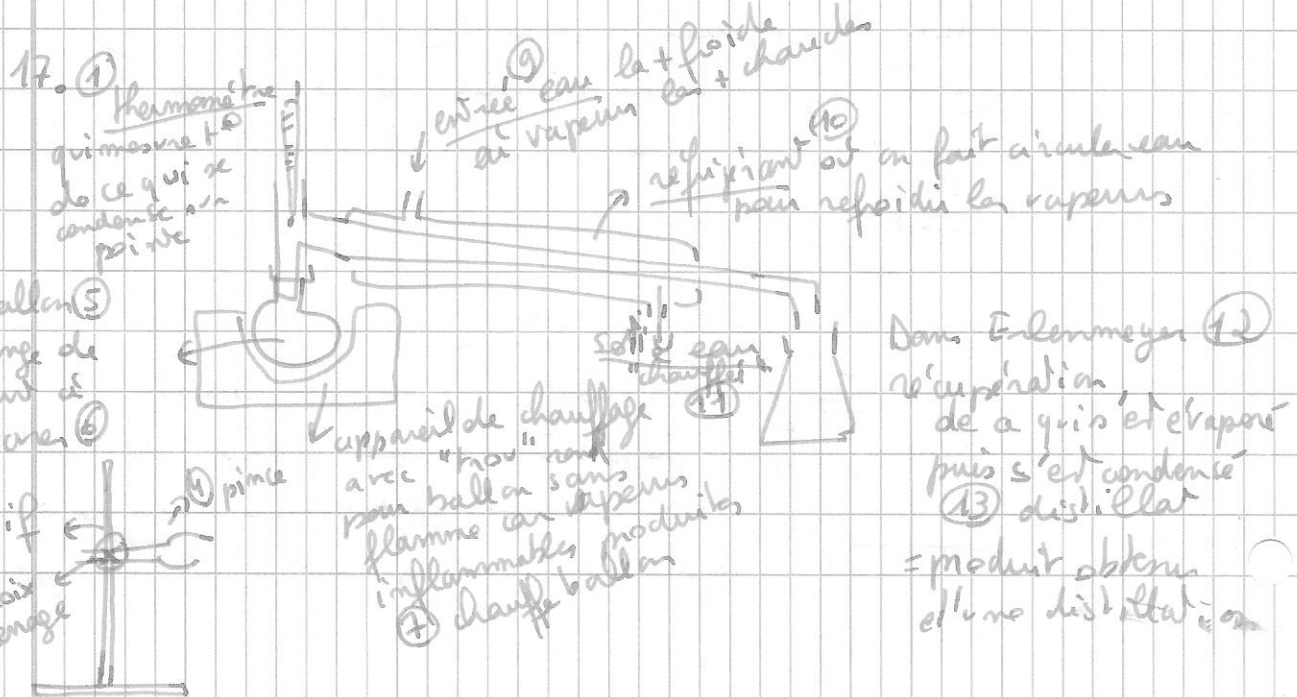 17. ①
thermomètre
qui mesure t°
de ce qui se
condense sur
paroi
⑨
entrée eau la + froide
où vapeurs les + chaudes
⑩
réfrigérant où on fait circuler eau
pour refroidir les vapeurs
ballon ⑤
⑥
④ pince
appareil de chauffage
avec "trou" rond
pour ballon sans
flamme car vapeurs
inflammables produites
⑦ chauffe ballon
sortie eau
"chauffée"
⑪
Dans Erlenmeyer ⑫
récupération
de ce qui s'est évaporé
puis s'est condensé
⑬ distillat
= produit obtenu
d'une distillation